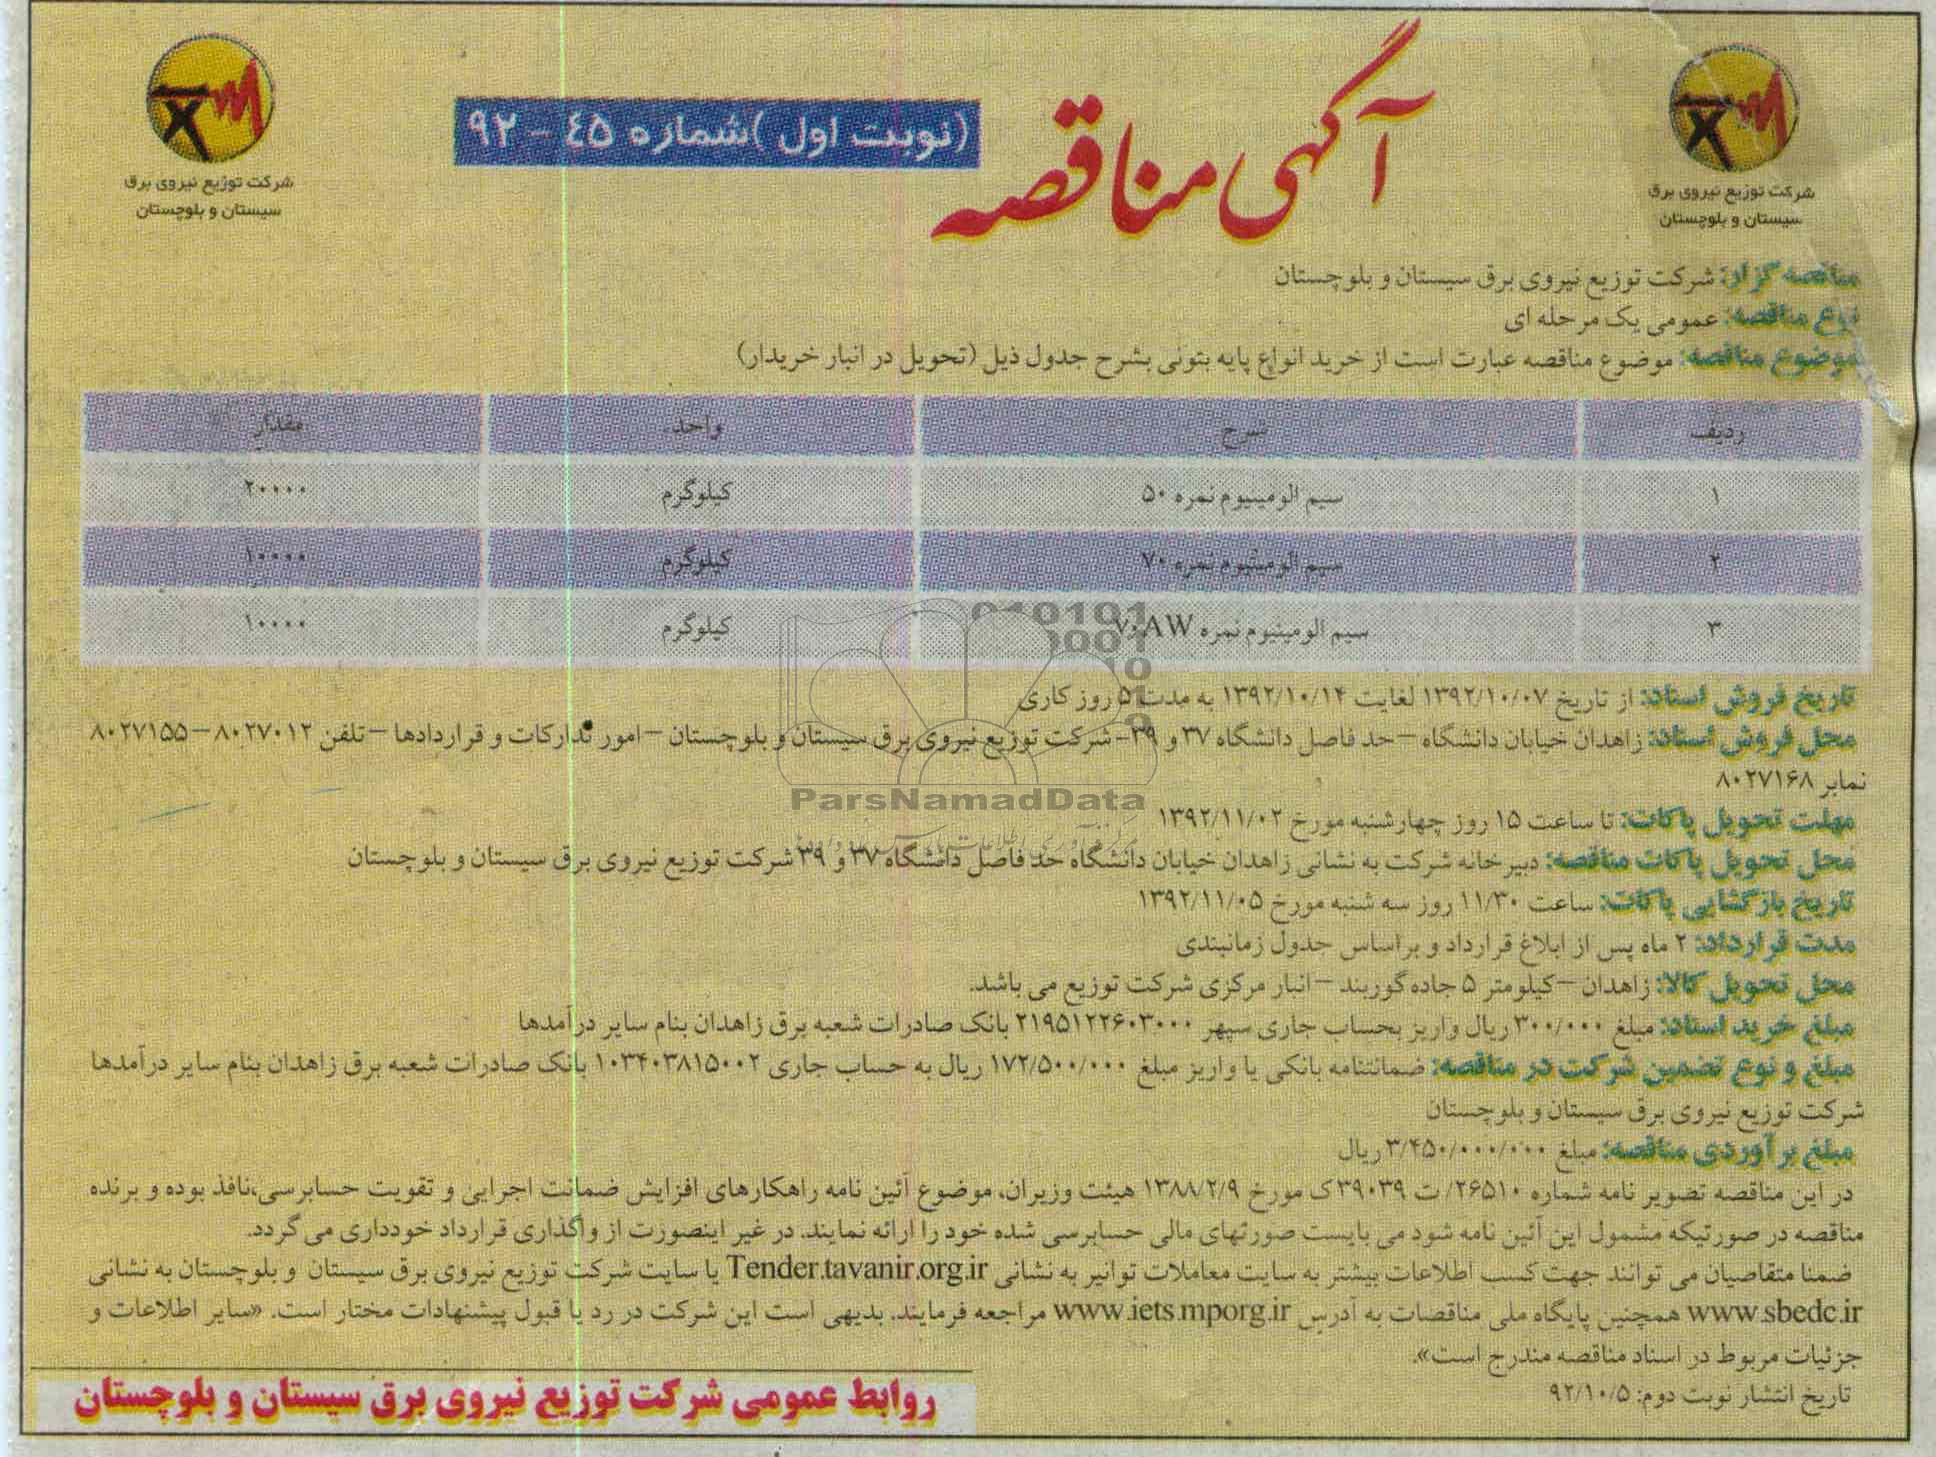 آگهی مناقصه
(نوبت اول) شماره ۴۵ - ۹۲
شرکت توزیع نیروی برق
سیستان و بلوچستان
شرکت توزیع نیروی برق
سیستان و بلوچستان
مناقصه گزار: شرکت توزیع نیروی برق سیستان و بلوچستان
نوع مناقصه: عمومی یک مرحله ای
موضوع مناقصه: موضوع مناقصه عبارت است از خرید انواع پایه بتونی بشرح جدول ذیل (تحویل در انبار خریدار)
ردیف شرح واحد مقدار
۱ سیم الومینیوم نمره ۵۰ کیلوگرم ۲۰۰۰۰
۲ سیم الومینیوم نمره ۷۰ کیلوگرم ۱۰۰۰۰
۳ سیم الومینیوم نمره ۷۰AW کیلوگرم ۱۰۰۰۰
تاریخ فروش اسناد: از تاریخ ۱۳۹۲/۱۰/۰۷ لغایت ۱۳۹۲/۱۰/۱۴ به مدت ۵ روز کاری
محل فروش اسناد: زاهدان خیابان دانشگاه – حد فاصل دانشگاه ۳۷ و ۳۹- شرکت توزیع نیروی برق سیستان و بلوچستان – امور تدارکات و قراردادها – تلفن ۸۰۲۷۰۱۲ – ۸۰۲۷۱۵۵
نمابر ۸۰۲۷۱۶۸
مهلت تحویل پاکات: تا ساعت ۱۵ روز چهارشنبه مورخ ۱۳۹۲/۱۱/۰۲
محل تحویل پاکات مناقصه: دبیرخانه شرکت به نشانی زاهدان خیابان دانشگاه حد فاصل دانشگاه ۳۷ و ۳۹ شرکت توزیع نیروی برق سیستان و بلوچستان
تاریخ بازگشایی پاکات: ساعت ۱۱/۳۰ روز سه شنبه مورخ ۱۳۹۲/۱۱/۰۵
مدت قرارداد: ۲ ماه پس از ابلاغ قرارداد و براساس جدول زمانبندی
محل تحویل کالا: زاهدان – کیلومتر ۵ جاده گوربند – انبار مرکزی شرکت توزیع می باشد.
مبلغ خرید اسناد: مبلغ ۳۰۰/۰۰۰ ریال واریز بحساب جاری سپهر ۲۱۹۵۱۲۲۶۰۳۰۰۰ بانک صادرات شعبه برق زاهدان بنام سایر درآمدها
مبلغ و نوع تضمین شرکت در مناقصه: ضمانتنامه بانکی یا واریز مبلغ ۱۷۲/۵۰۰/۰۰۰ ریال به حساب جاری ۱۰۳۴۰۳۸۱۵۰۰۲ بانک صادرات شعبه برق زاهدان بنام سایر درآمدها
شرکت توزیع نیروی برق سیستان و بلوچستان
مبلغ برآوردی مناقصه: مبلغ ۳/۴۵۰/۰۰۰/۰۰۰ ریال
در این مناقصه تصویر نامه شماره ۲۶۵۱۰/ ت ۳۹۰۳۹ ک مورخ ۱۳۸۸/۲/۹ هیئت وزیران، موضوع آئین نامه راهکارهای افزایش ضمانت اجرایی و تقویت حسابرسی، نافذ بوده و برنده
مناقصه در صورتیکه مشمول این آئین نامه شود می بایست صورتهای مالی حسابرسی شده خود را ارائه نمایند. در غیر اینصورت از واگذاری قرارداد خودداری می گردد.
ضمنا متقاصیان می توانند جهت کسب اطلاعات بیشتر به سایت معاملات توانیر به نشانی Tender.tavanir.org.ir یا سایت شرکت توزیع نیروی برق سیستان و بلوچستان به نشانی
www.sbedc.ir همچنین پایگاه ملی مناقصات به آدرس www.iets.mporg.ir مراجعه فرمایند. بدیهی است این شرکت در رد یا قبول پیشنهادات مختار است. «سایر اطلاعات و
جزئیات مربوط در اسناد مناقصه مندرج است».
تاریخ انتشار نوبت دوم: ۹۲/۱۰/۵
روابط عمومی شرکت توزیع نیروی برق سیستان و بلوچستان
ParsNamadData